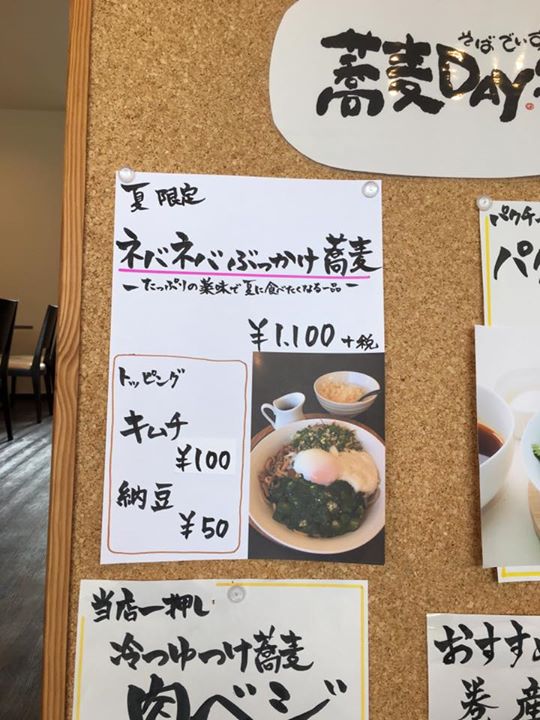 そばでぃず
蕎麦DAY
夏限定
ネバネバぶっかけ蕎麦
ーたっぷりの薬味で夏に食べたくなる一品ー
¥1.100+税
トッピング
キムチ
¥100
納豆
¥50
パクチー
パク
当店一押し
冷つゆつけ蕎麦
肉ベジ
おすすめ